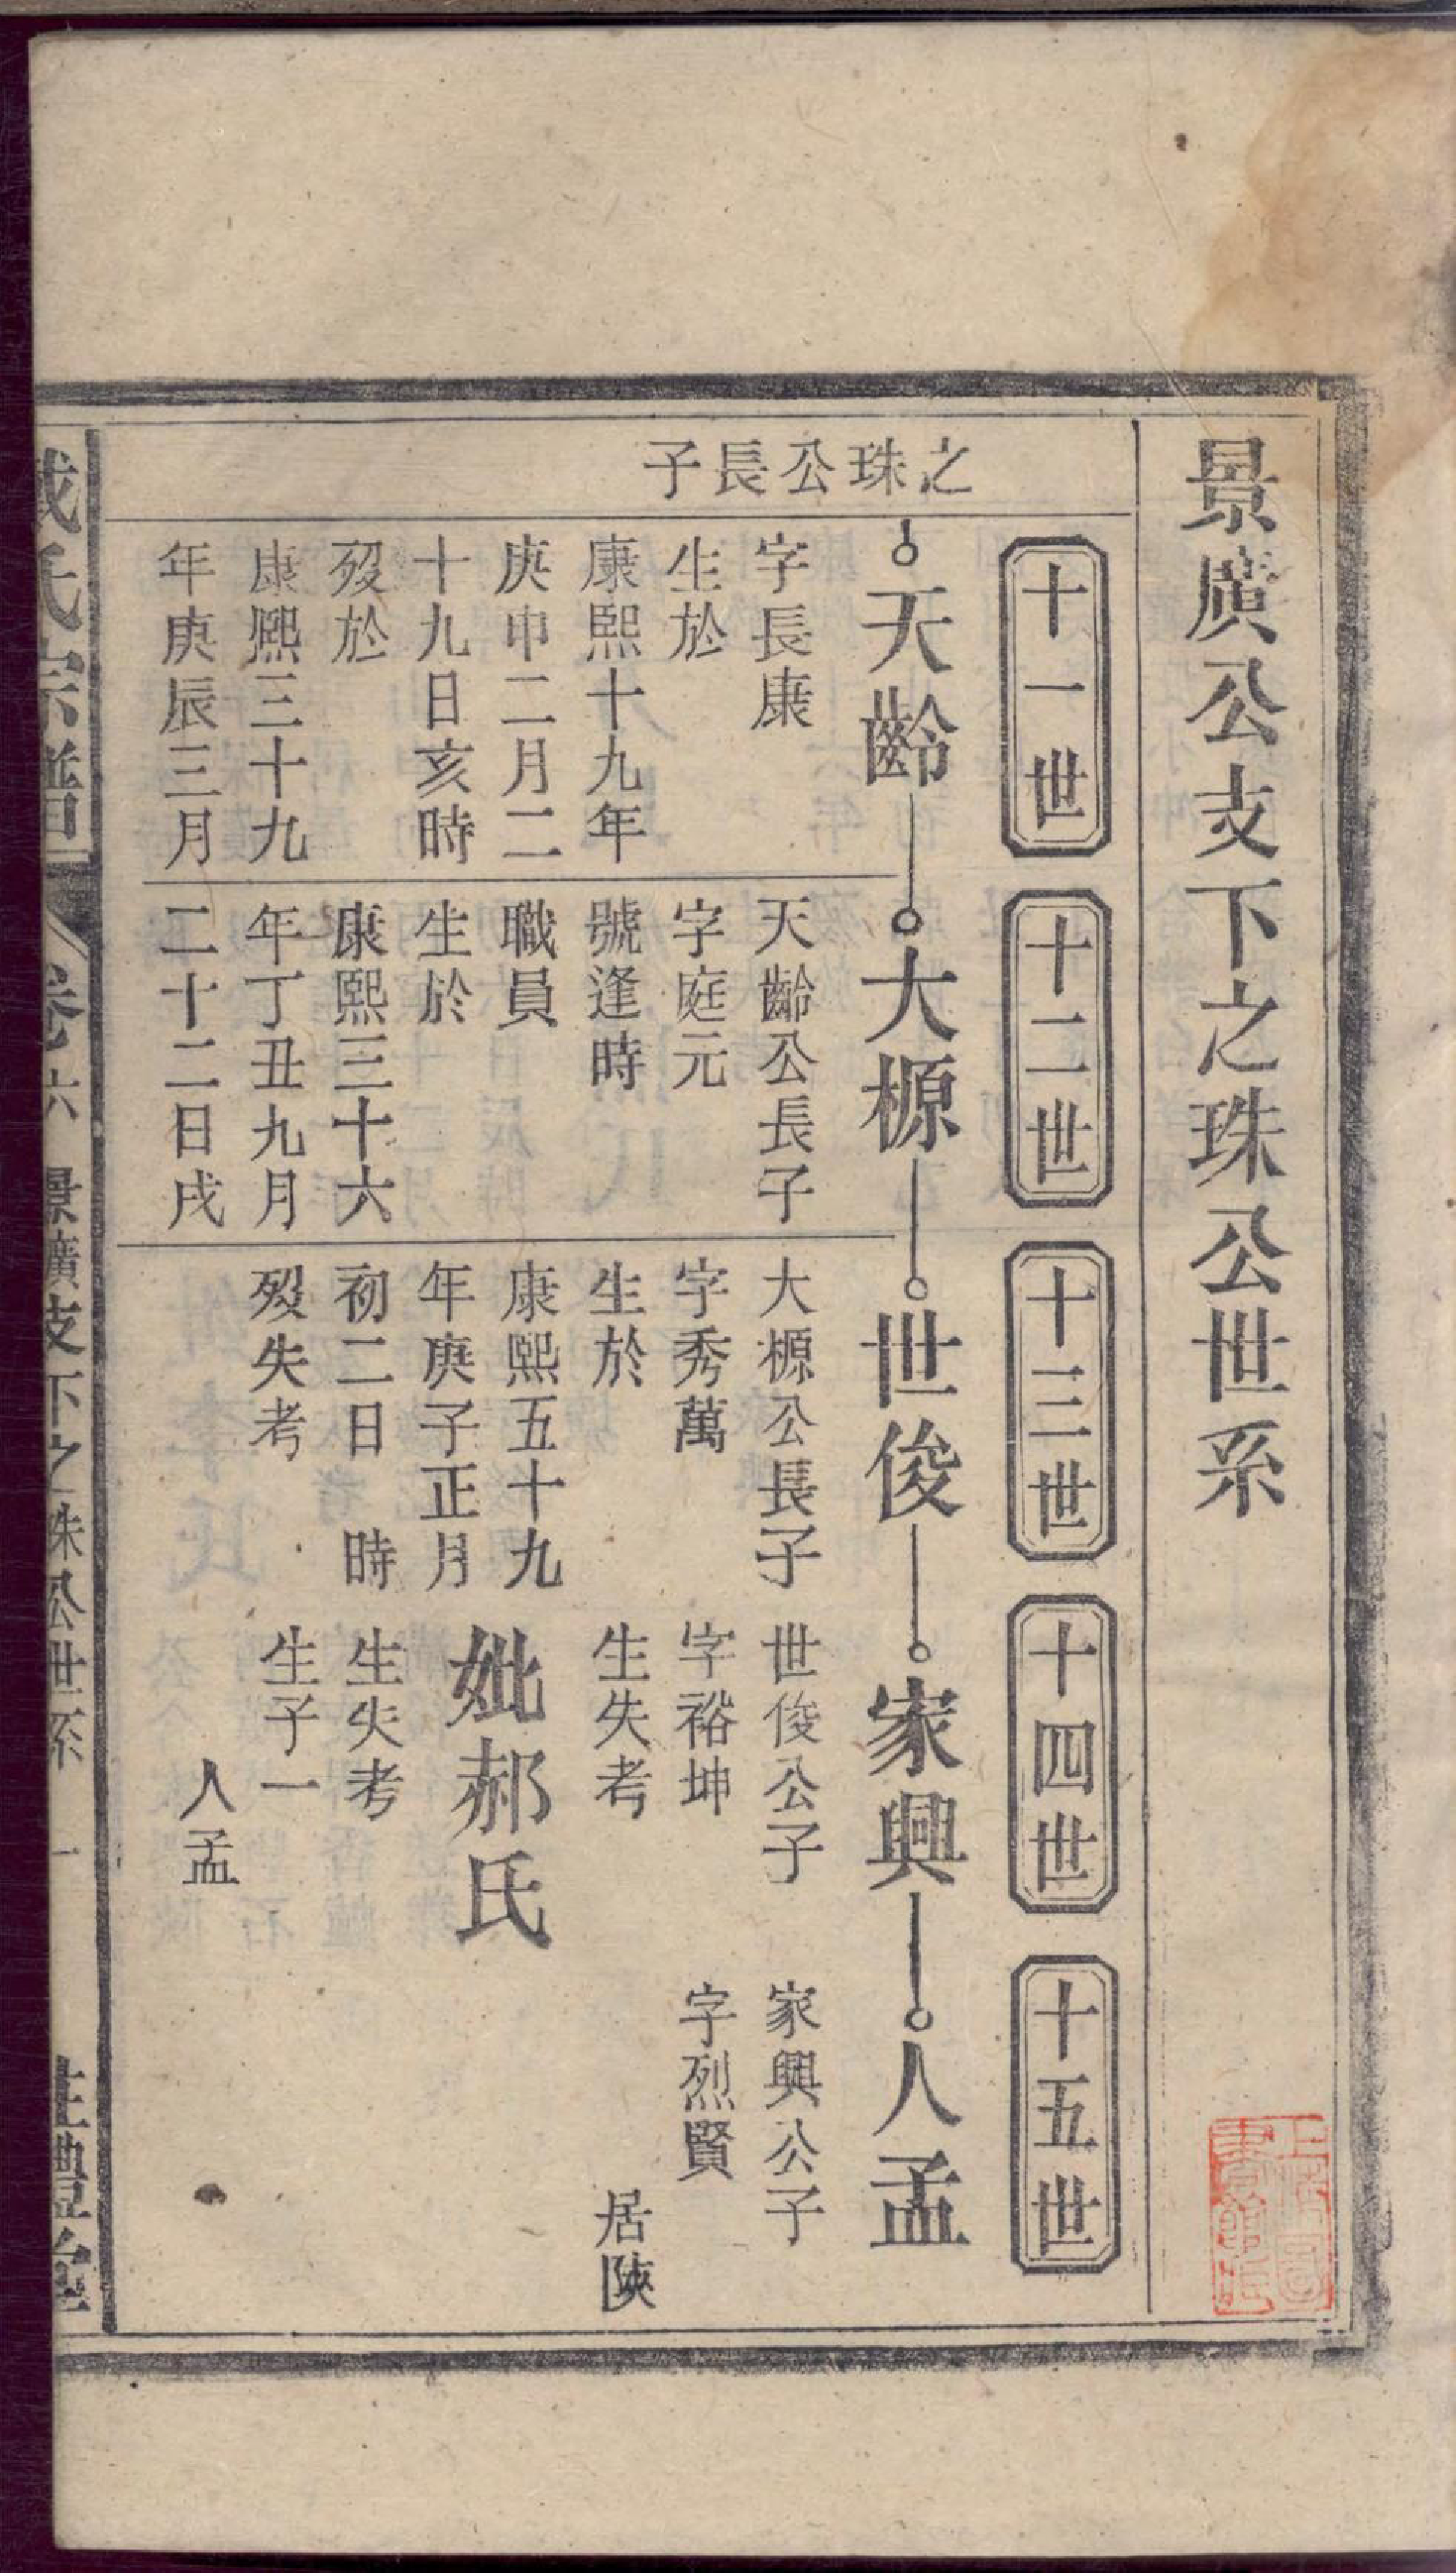 景廣公支下之珠公世系
十一世
十二世
十三世
十四世
十五世
之珠公長子
天齡
大榞
世俊
家興
人孟
字長康
生於
康熙十九年
庚申二月二
十九日亥時
歿於
康熙三十九
年庚辰三月
天齡公長子
字庭元
號逢時
職員
生於
康熙三十六
年丁丑九月
二十二日戌
大榞公長子
字秀萬
生於
康熙五十九
年庚子正月
初二日 時
歿失考
世俊公子
字裕坤
生失考
妣郝氏
生失考
生子一
人孟
家興公子
字烈賢
居陝
氏宗譜
卷六
景廣支下之珠公世系
一
禮堂